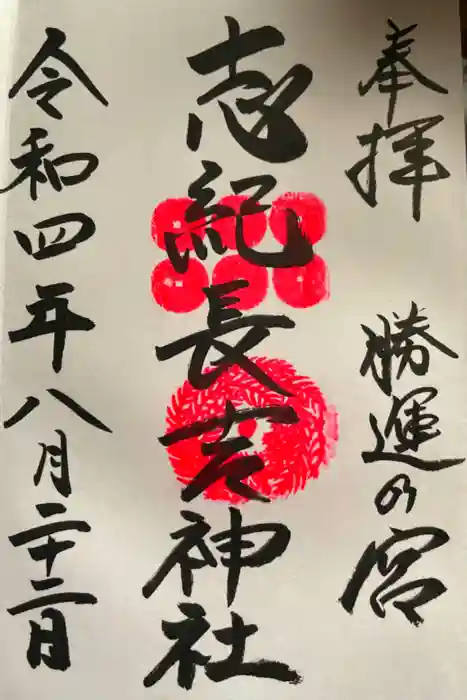 奉拝 勝運の宮
志紀長吉神社
令和四年八月二十二日